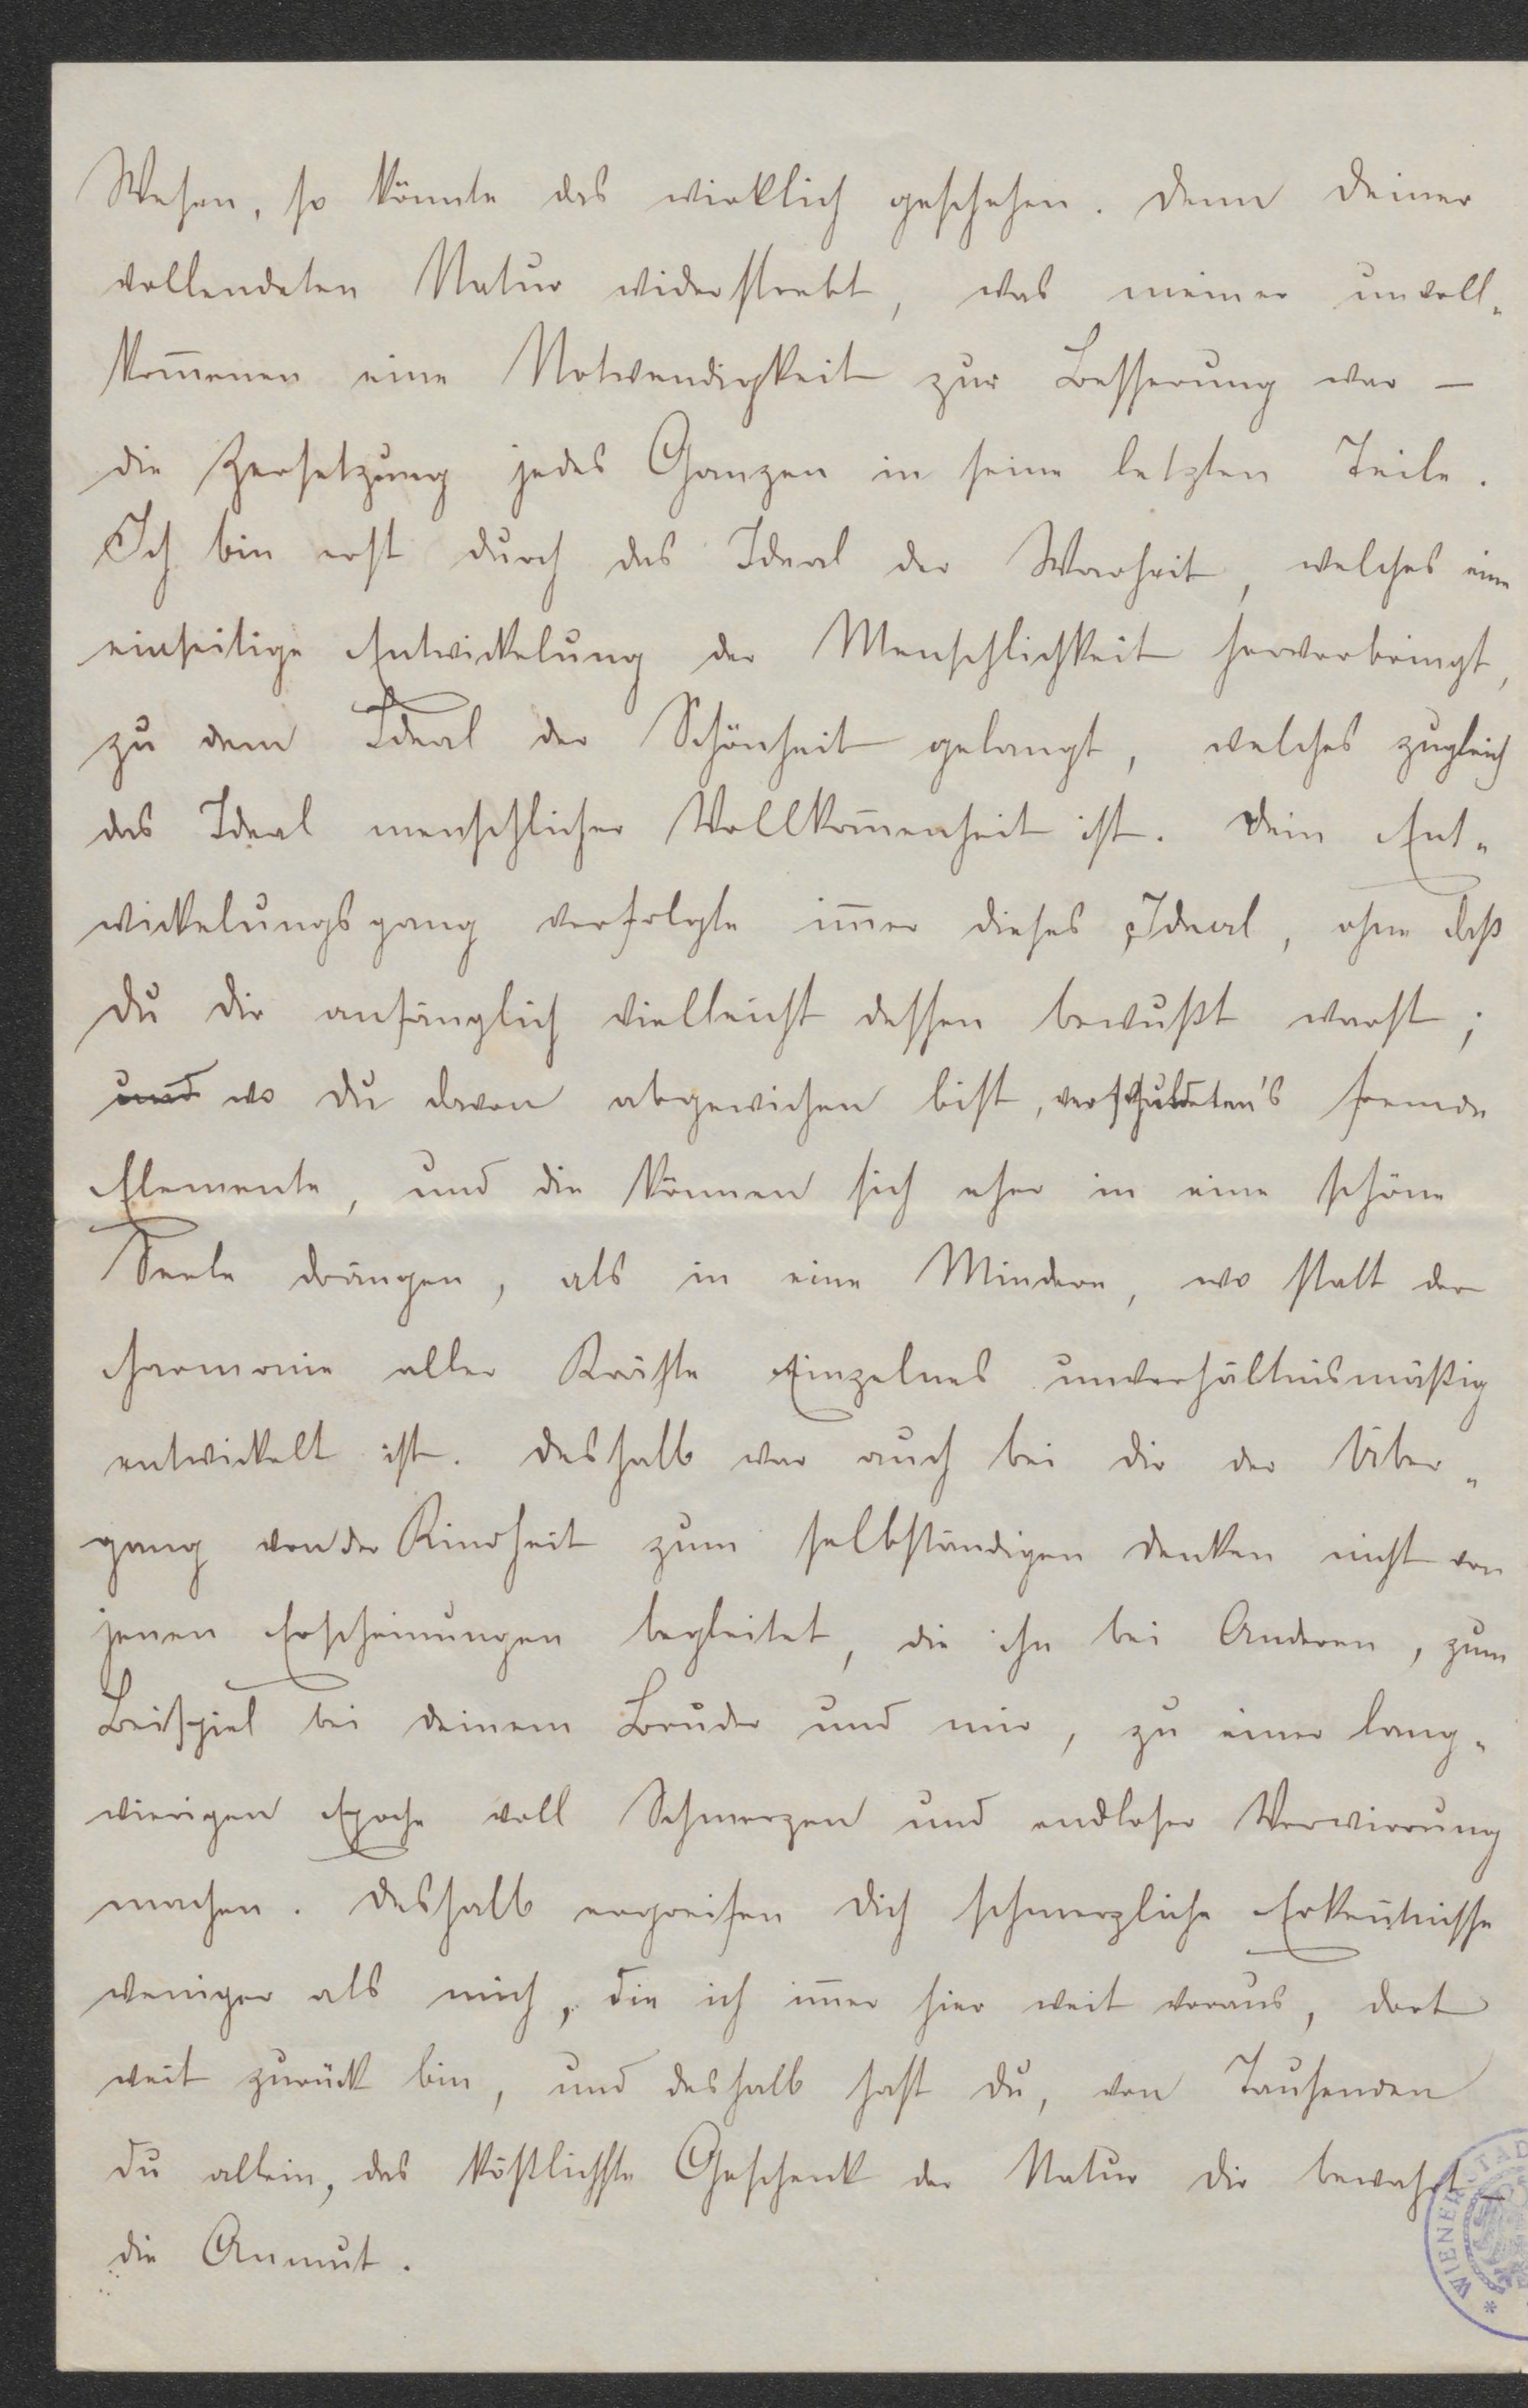 Wesen, so könnte das wirklich geschehen. Denn Deiner
vollendeten Natur widerstrebt, was meiner unvoll-
kom̄enen eine Notwendigkeit zur Besserung war –
die Zersetzung jedes Ganzen in seine letzten Teile.
Ich bin erst durch das Ideal der Warheit, welches eine
einseitige Entwickelung der Menschlichkeit hervorbringt,
zu dem Ideal der Schönheit gelangt, welches zugleich
das Ideal menschlicher Vollkom̄enheit ist. Dein Ent-
wickelungsgang verfolgte im̄er dieses Ideal, ohne daß
Du Dir anfänglich vielleicht dessen bewußt warst;
und wo Du davon abgewichen bist, verschuldeten's fremde
Elemente, und die können sich eher in eine schöne
Seele drängen, als in eine Mindere, wo statt der
Harmonie aller Kräfte Einzelnes unverhältnismäßig
entwickelt ist. Deshalb war auch bei Dir der Über-
gang von der Kindheit zum selbständigen Denken nicht von
jenen Erscheinungen begleitet, die ihn bei Anderen, zum
Beispiel bei Deinem Bruder und mir, zu einer lang-
wierigen Epoche voll Schmerzen und endloser Verwirrung
machen. Deshalb ergreifen Dich schmerzliche Erken̄tnisse
weniger als mich, die ich im̄er hier weit voraus, dort
weit zurück bin, und deshalb hast Du, von Tausenden
Du allein, das köstlichste Geschenk der Natur Dir bewahrt –
die Anmut.
WIENER STAD